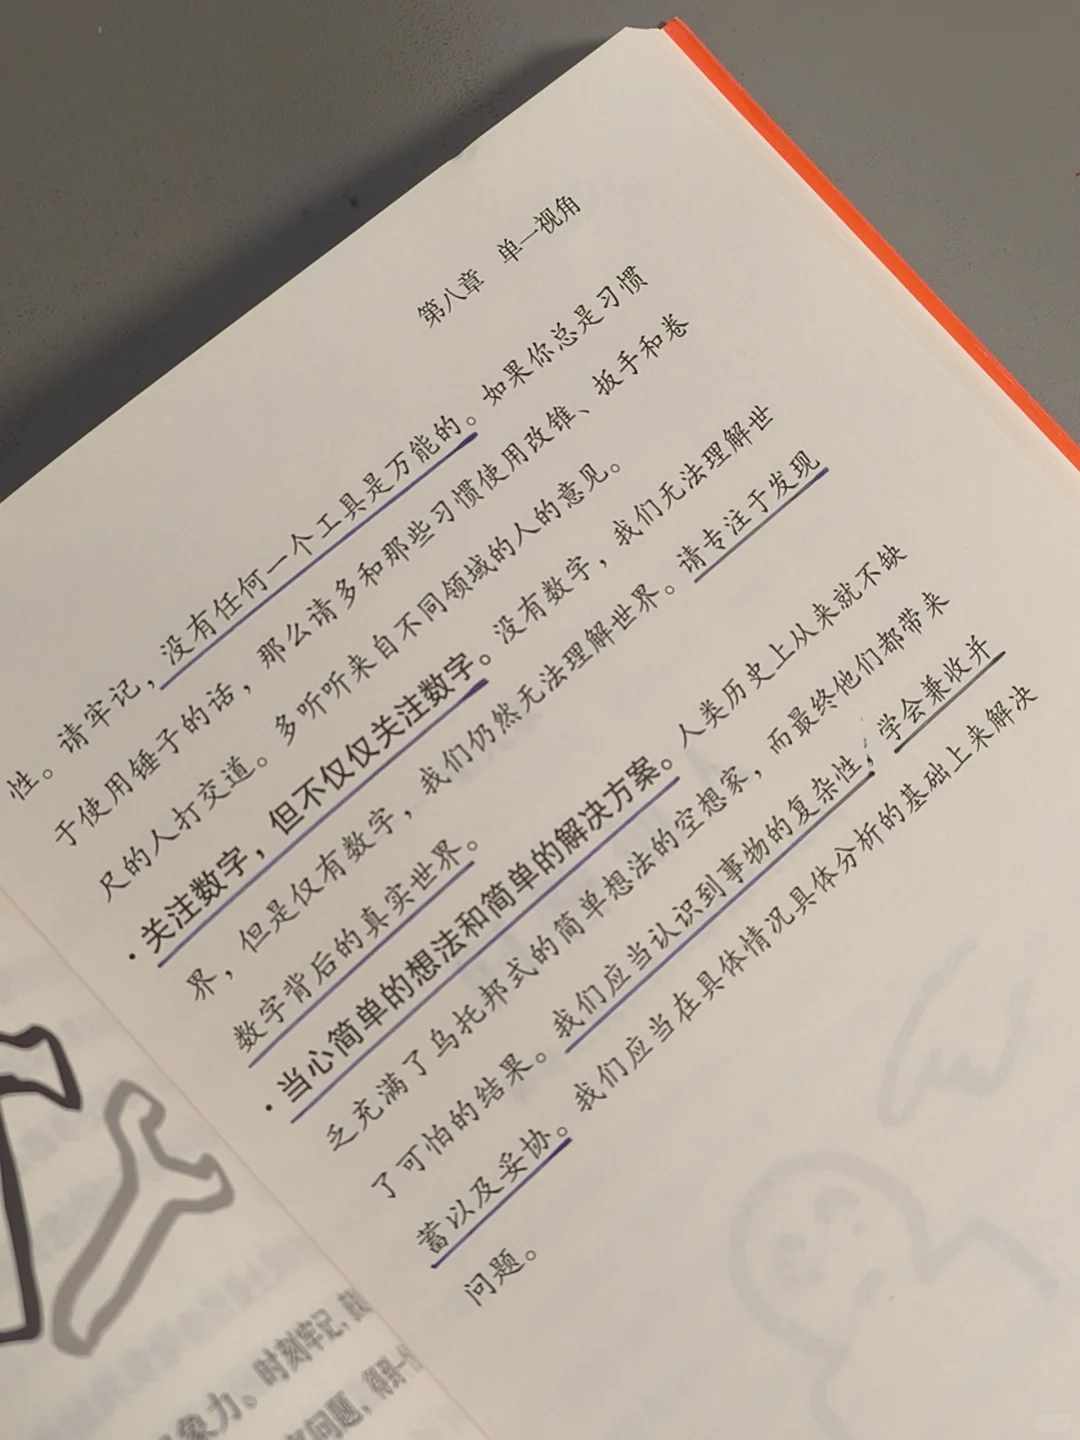 第八章 单一视角
性。请牢记，没有任何一个工具是万能的。如果你总是习惯
于使用锤子的话，那么请多和那些习惯使用改锥、扳手和卷
尺的人打交道。多听听来自不同领域的人的意见。
·关注数字，但不仅仅关注数字。没有数字，我们无法理解世
界，但是仅有数字，我们仍然无法理解世界。请专注于发现
数字背后的真实世界。
·当心简单的想法和简单的解决方案。人类历史上从来就不缺
乏充满了乌托邦式的简单想法的空想家，而最终他们都带来
了可怕的结果。我们应当认识到事物的复杂性，学会兼收并
蓄以及妥协。我们应当在具体情况具体分析的基础上来解决
问题。
象力。时刻牢记，
问题，得到一